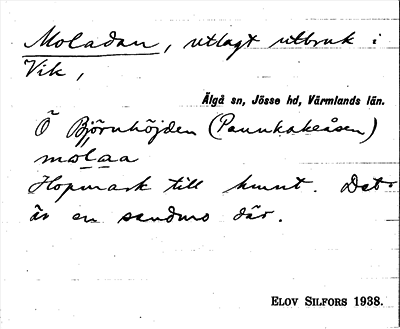 Moladan, utlagt utbruk i
Vik,
Älgå sn, Jösse hd, Värmlands län.
Ö Björnhöjden (Pannkakeåsen)
molaa
Hopmark till hunnt. Det
är en sandmo där.
ELOV SILFORS 1938.